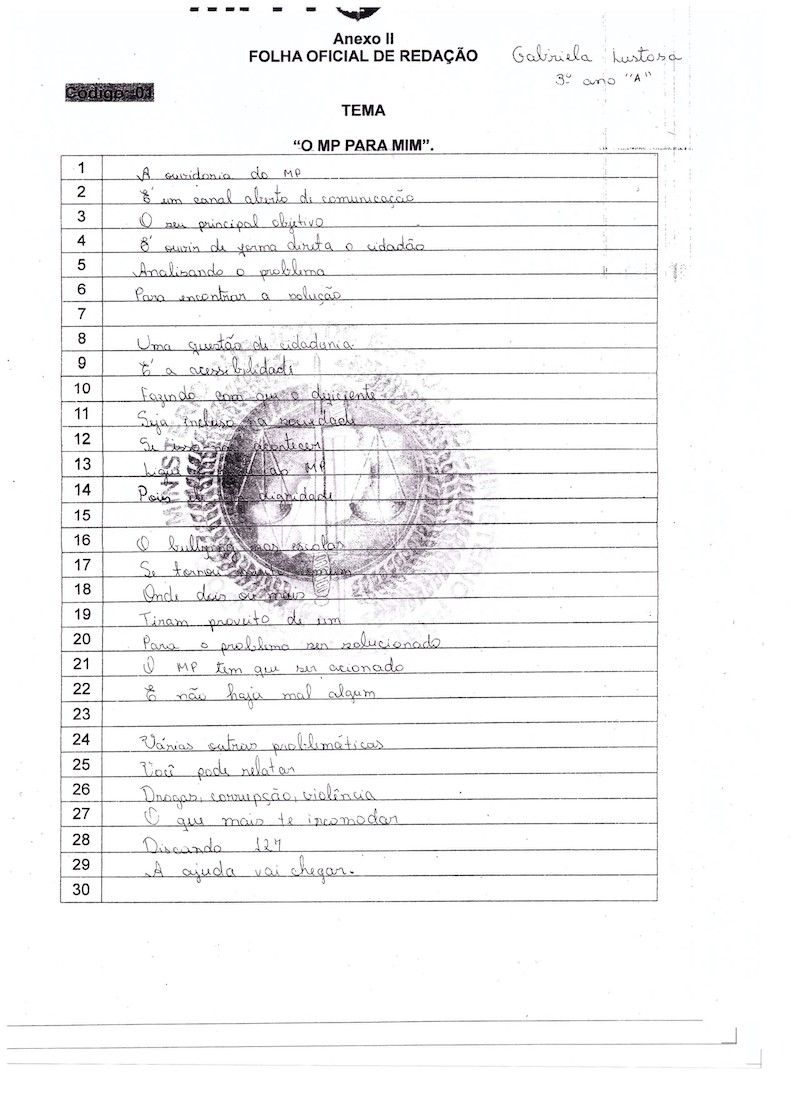 Anexo II
FOLHA OFICIAL DE REDAÇÃO
Gabriela Lustosa
3º ano "A"
Código: 01
TEMA
"O MP PARA MIM".
1 A ouvidoria do MP
2 É um canal aberto de comunicação
3 O seu principal objetivo
4 É ouvir de forma direta o cidadão
5 Analisando o problema
6 Para encontrar a solução
7
8 Uma questão de cidadania
9 É a acessibilidade
10 Fazendo com que o deficiente
11 Seja incluso na sociedade
12 Se isso não acontecer
13 Ligue ao MP
14 Pois dignidade
15
16 O bullying nas escolas
17 Se tornou muito comum
18 Onde dois ou mais
19 Tiram proveito de um
20 Para o problema ser solucionado
21 O MP tem que ser acionado
22 E não haja mal algum
23
24 Várias outras problemáticas
25 Você pode relatar
26 Drogas, corrupção, violência
27 O que mais te incomodar
28 Discando 127
29 A ajuda vai chegar.
30